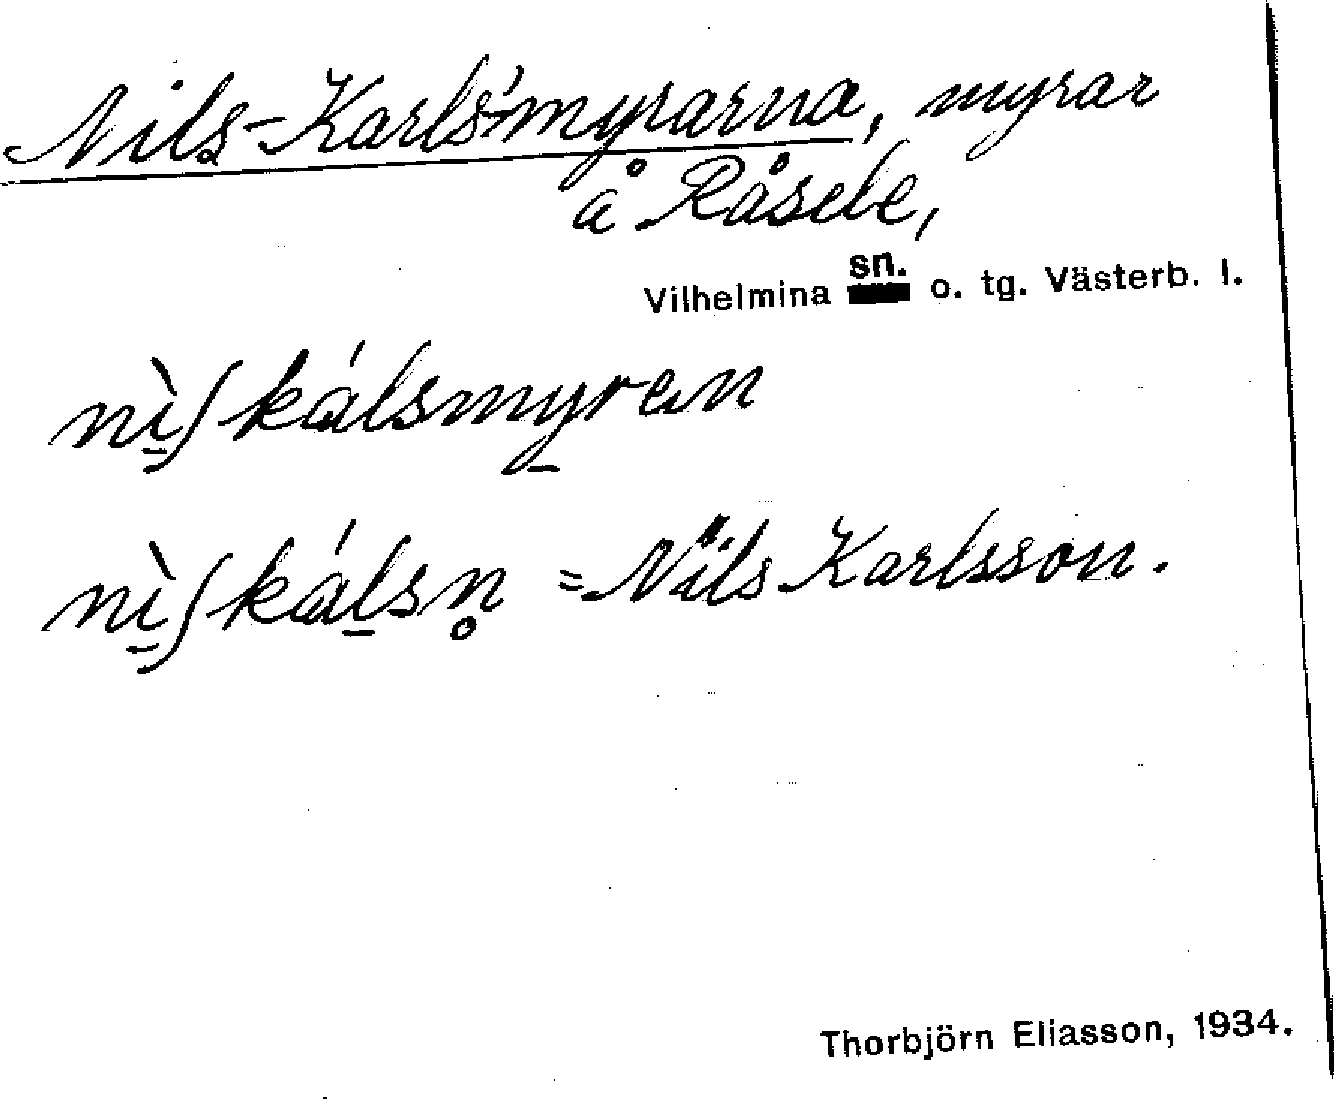 Nils-Karls-myrarna, myrar
å Råsele,
Vilhelmina sn. o. tg. Västerb. l.
nı̲̀ʃkálsmy̲ren
nı̲̀ʃkál̲sn̥ = Nils Karlsson.
Thorbjörn Eliasson, 1934.